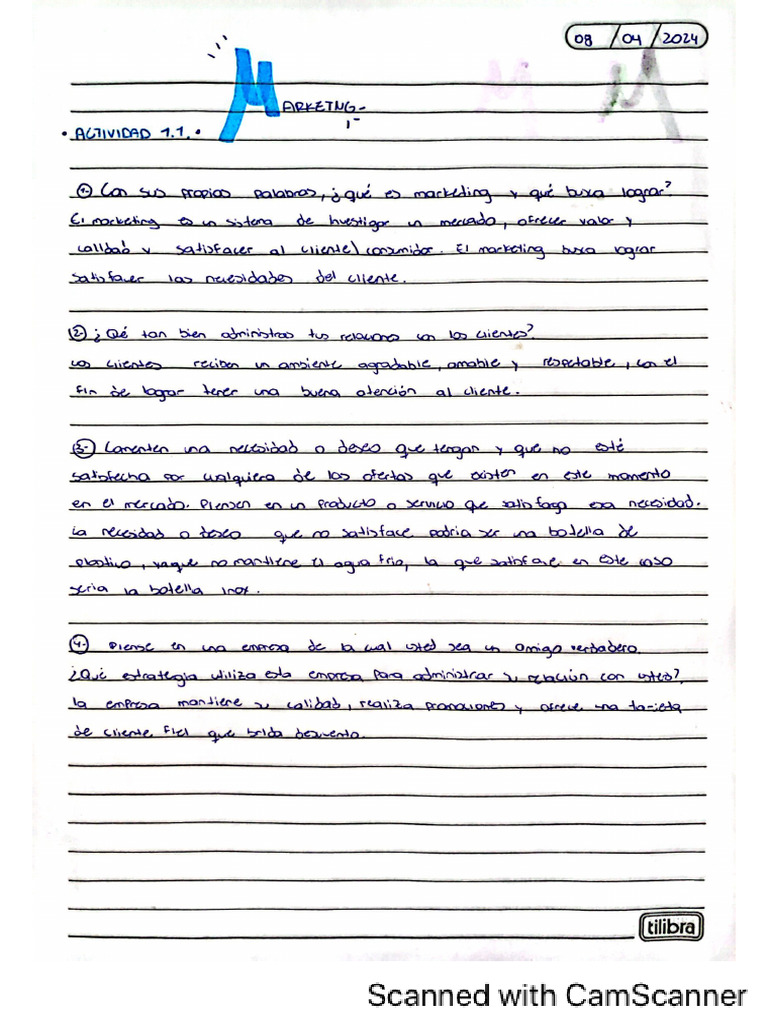 08 / 04 / 2024
MARKETNG-
I-
• ACTIVIDAD 1.1. •
1- Con sus propias palabras, ¿qué es marketing y qué busca lograr?
El marketing es un sistema de investigar un mercado, ofrecer valor y
calidad y satisfacer al cliente/consumidor. El marketing busca lograr
satisfacer las necesidades del cliente.
2- ¿Qué tan bien administras tus relaciones con los clientes?
Los clientes reciben un ambiente agradable, amable y respetable, con el
fin de lograr tener una buena atención al cliente.
3- Comenten una necesidad o deseo que tengan y que no esté
satisfecha por cualquiera de las ofertas que existen en este momento
en el mercado. Piensen en un producto o servicio que satisfaga esa necesidad.
La necesidad o deseo que no satisface podria ser una botella de
plastico, ya que no mantiene el agua fria, la que satisface en este caso
seria la botella inox.
4- Piense en una empresa de la cual usted sea un amigo verdadero.
¿Qué estrategia utiliza esta empresa para administrar su relación con usted?
La empresa mantiene su calidad, realiza promociones y ofrece una tarjeta
de cliente fiel que brida descuento.
tilibra
Scanned with CamScanner